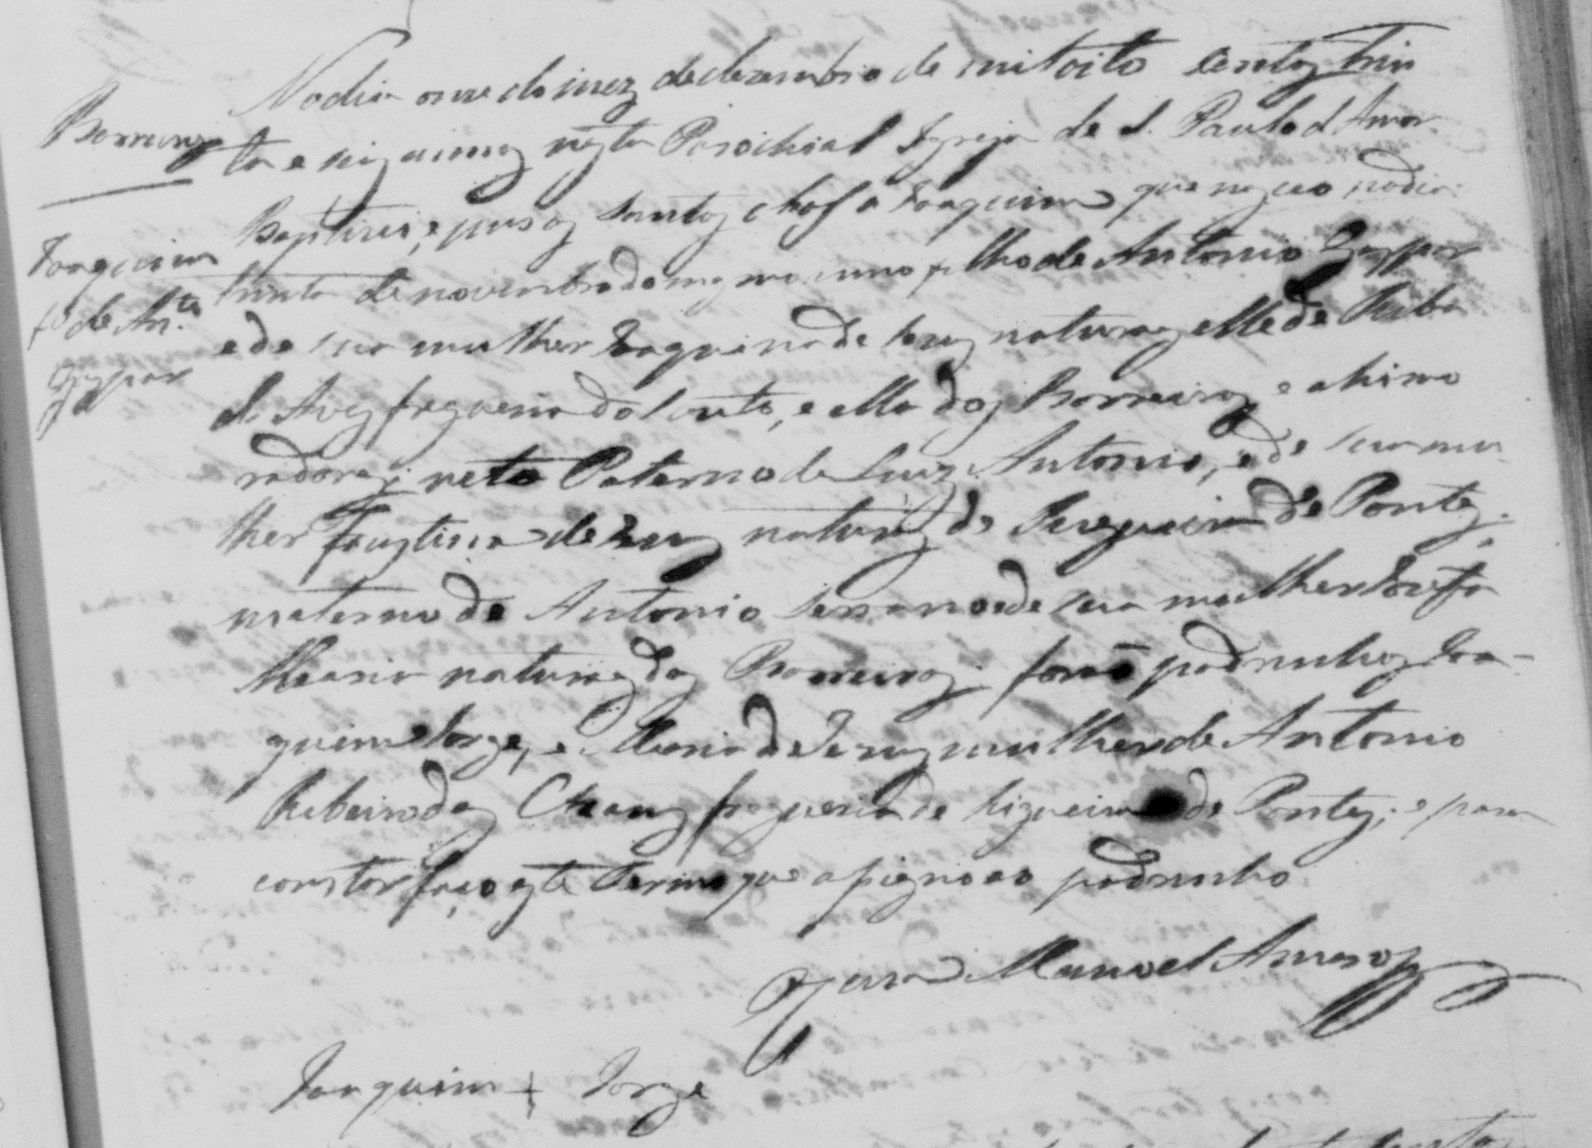 Barreiras
Joaquim
fº de Antº
Gaspar
No dia onze do mez de dezembro de mil oito centos trin
ta e seis annos nesta Parochial Igreja de S. Paulo d'Amor
Baptizei, e pus os santos oleos a Joaquim que nasceo no dia
trinta de novembro do mesmo anno filho de Antonio Gaspar
e de sua mulher Joaquina de Jesus naturaes elle de Riba
d'Aves freguesia do Souto, e ella das Barreiras e ahi mo
radores; neto Paterno de Luiz Antonio, e de sua mu
lher Faustina de Jesus naturaes de Regueira de Pontes.
materno de Antonio Serrano e de sua mulher Josefa
Maria naturaes das Barreiras; forão padrinhos Joa-
quim Jorge, e Maria de Jesus mulher de Antonio
Ribeiro das Chans freguesia de Rigueira de Pontes; e para
constar faço este termo que asignao padrinho
O Cura Manoel
Joaquim + Jorge